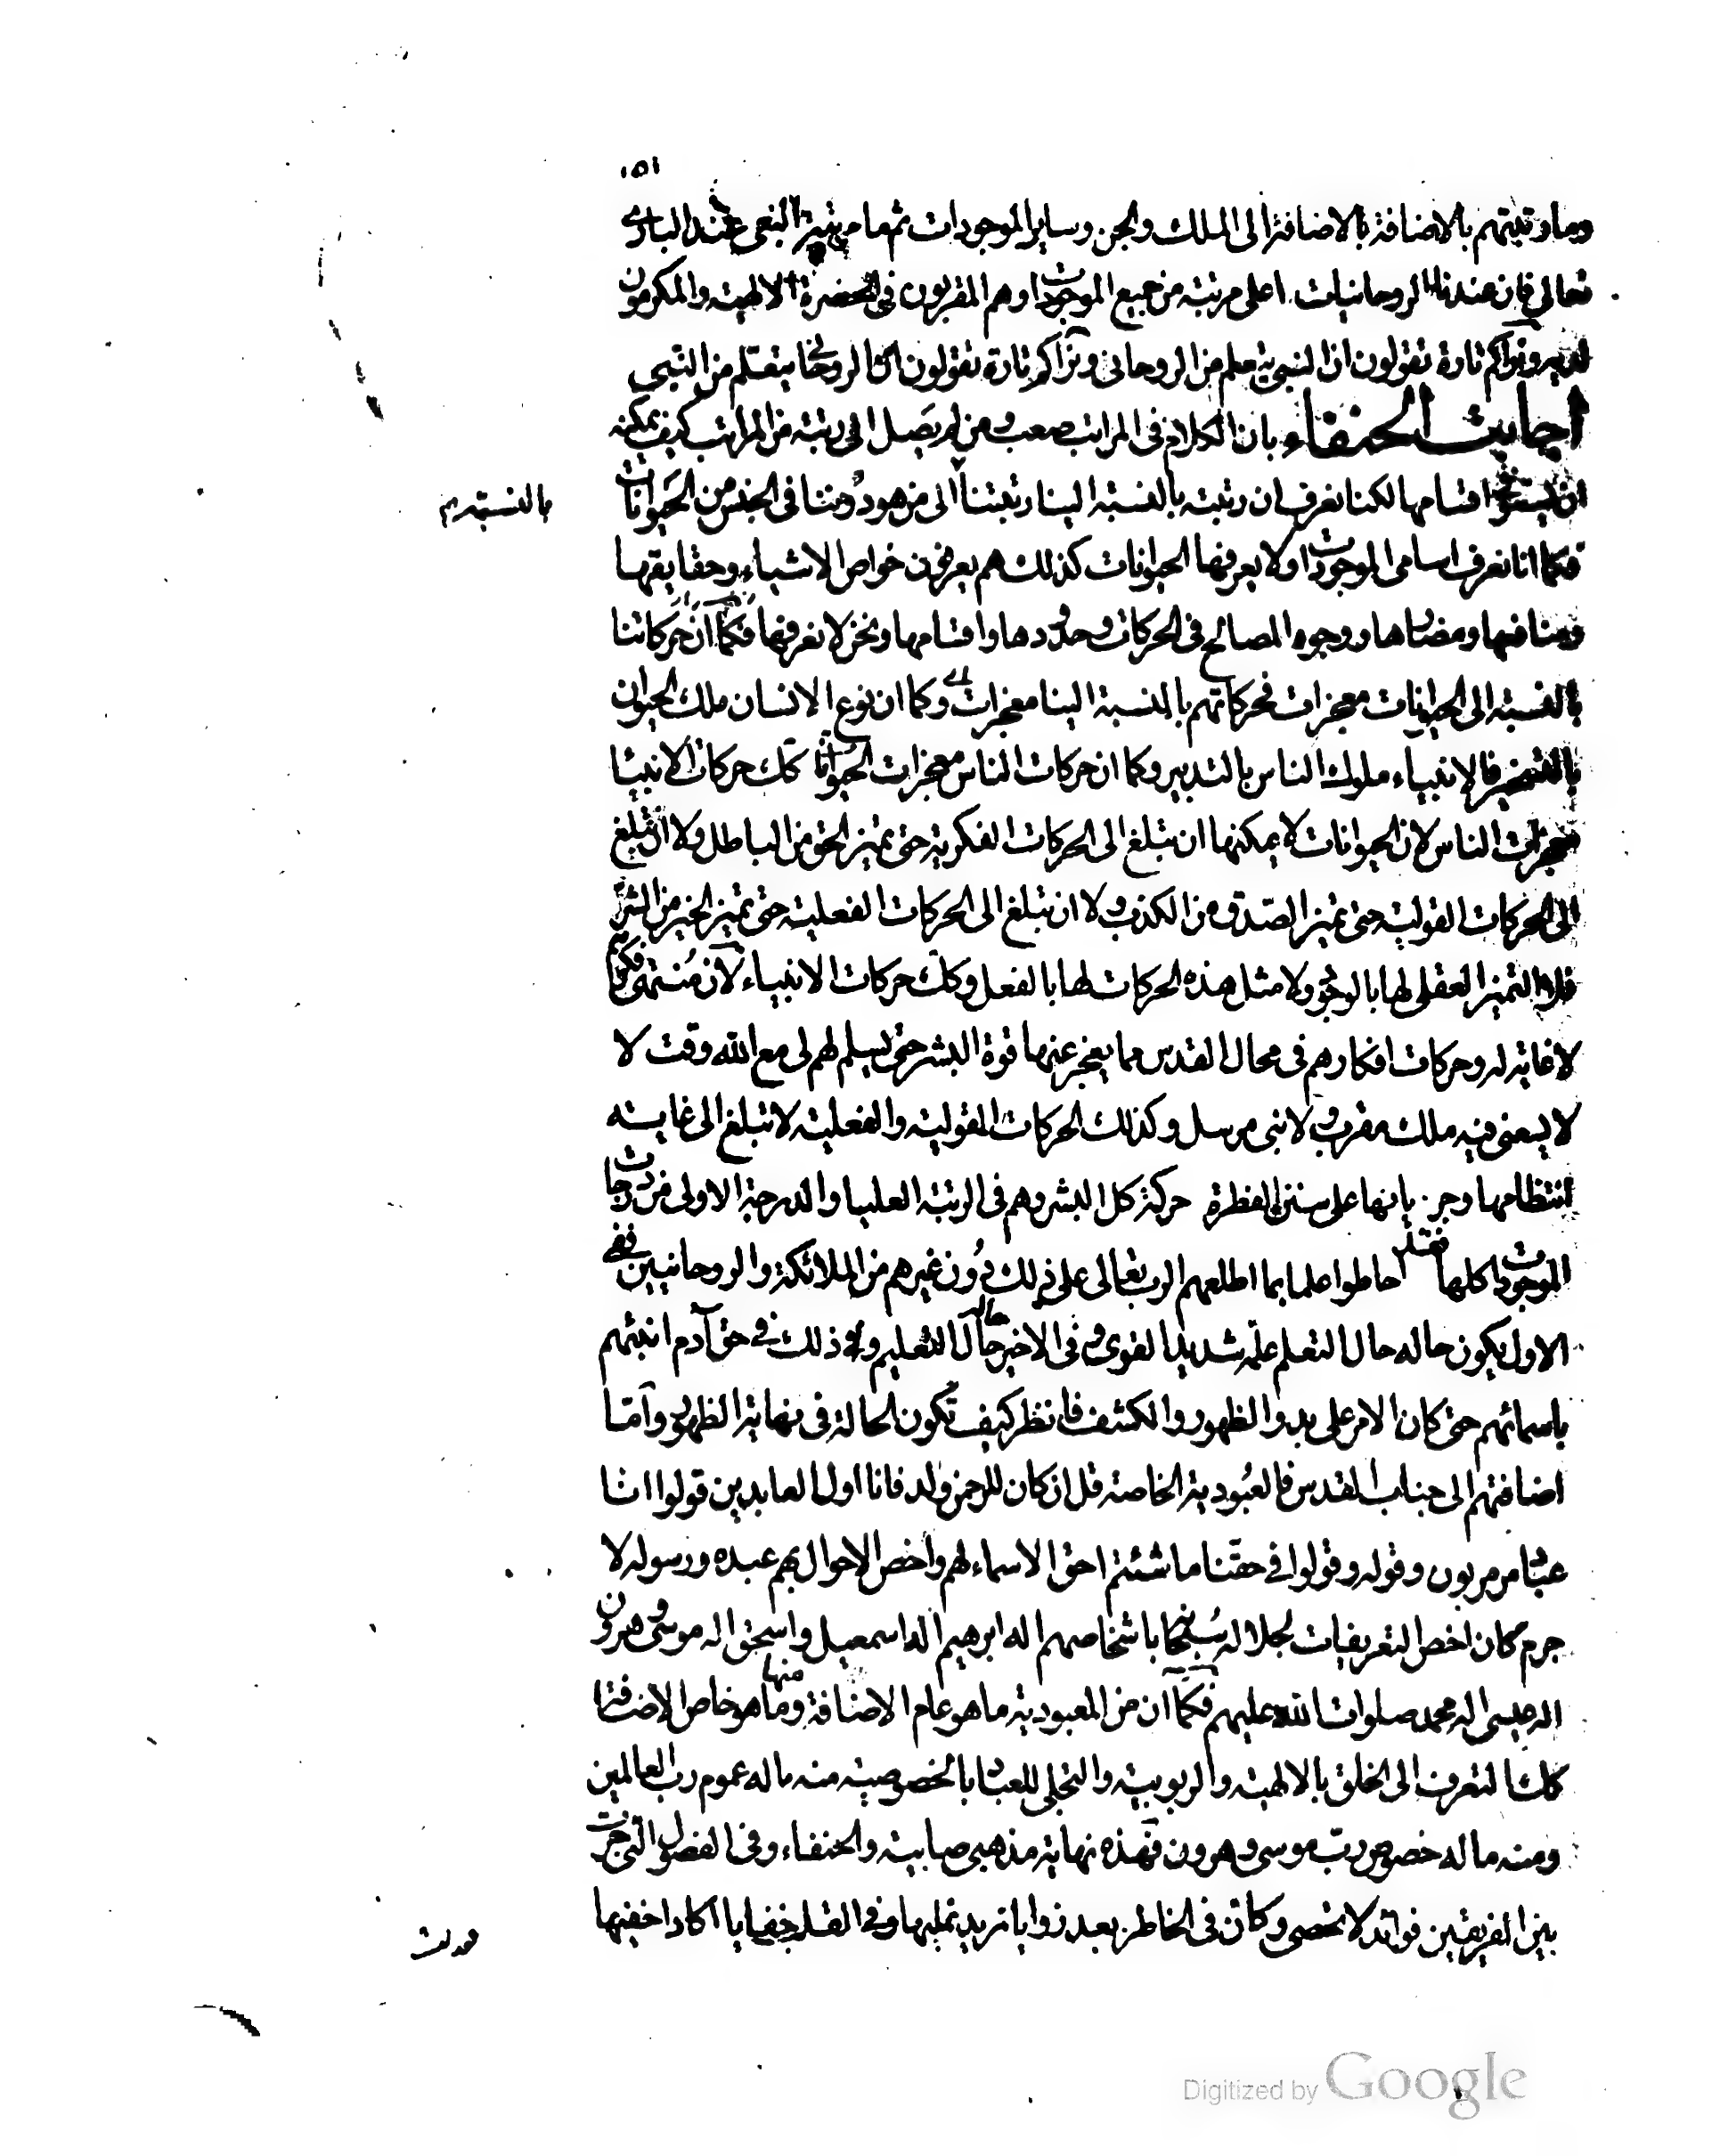 ١٥١
وما رتبتهم بالاضافة بالاضافة الى الملك والجن وساير الموجودات ثم ما مرتبة النبى عند البارى
تعالى فان عندنا الروحانيات اعلى مرتبة من جميع الموجودات وهم المقربون فى الحضرة الالهية والمكرمون
لديه ونراكم تارة تقولون ان النبى يتعلم من الروحانى ونراكم تارة تقولون ان الروحانى يتعلم من النبى
اجابت الحنفاء بان الكلام فى المراتب صعب ومن لم يصل الى رتبة من المراتب كيف يمكنه
ان يستوفى اقسامها لكنا نعرف ان رتبته بالنسبة الينا رتبتنا الى من هو دوننا فى الجنس من الحيوانات
بالنسبة
فكما انا نعرف اسامى الموجودات ولا يعرفها الحيوانات كذلك هم يعرفون خواص الاشياء وحقايقها
ومنافعها ومضارها ووجوه المصالح فى الحركات وحدودها واقسامها ونحن لا نعرفها فكما ان حركاتنا
بالنسبة الى الحيوانات معجزات فحركاتهم بالنسبة الينا معجزات وكما ان نوع الانسان ملك الحيوان
بالتسخير فالانبياء ملوك الناس بالتدبير وكما ان حركات الناس معجزات الحيوانات كك حركات الانبيا
معجزات الناس لان الحيوانات لا يمكنها ان تبلغ الى الحركات الفكرية حتى تميز الحق من الباطل ولا ان تبلغ
الى الحركات القولية حتى تميز الصدق من الكذب ولا ان تبلغ الى الحركات الفعلية حتى تميز الخير من الشر
فلا التميز العقلى لها بالوجود ولا مثل هذه الحركات لها بالفعل وكك حركات الانبياء لان منتهى فكرهم
لا غاية له وحركات افكارهم فى محال القدس مما يعجز عنها قوة البشر حتى يسلم لهم لى مع الله وقت لا
لا يسعنى فيه ملك مقرب ولا نبى مرسل وكذلك الحركات القولية والفعلية لا تبلغ الى غاية
انتظامها وجريانها على سنن الفطرة حركة كل البشر وهم فى الرتبة العليا والدرجة الاولى من درجات
الموجودات كلها فقد احاطوا علما بما اطلعهم الرب تعالى على ذلك دون غيرهم من الملائكة والروحانيين ففى
الاول يكون حاله حال التعلم علمه شديد القوى وفى الاخير حاله حال التعليم وذلك فى حق آدم انبئهم
باسمائهم حتى كان الامر على بدو الظهور والكشف فانظر كيف تكون الحالة فى نهاية الظهور واما
اضافتهم الى جناب القدس فالعبودية الخاصة قل ان كان للرحمن ولد فانا اول العابدين قولوا انا
عباد مربوبون وقوله وقولوا فى حقنا ما شئتم احق الاسماء لهم واخص الاحوال بهم عبده ورسوله لا
جرم كان اخص التعريفات لجلاله سبحانه باشخاصهم اله ابرهيم اله اسمعيل واسحق اله موسى وهرون
اله عيسى اله محمد صلوات الله عليهم فكما ان من العبودية ما هو عام الاضافة ومنها ما هو خاص الاضافة
كك التعرف الى الخلق بالالهية والربوبية والتجلى للعباد بالخصوصية منه ما له عموم رب العالمين
ومنه ما له خصوص رب موسى وهرون فهذه نهاية مذهبى صابية والحنفاء وفى الفصول التى جرت
بين الفريقين فوائد لا تحصى وكان فى الخاطر بعد زوايا نريد نمليها وفى القلب خفايا اكاد اخفيها
فعدلت
Digitized by Google